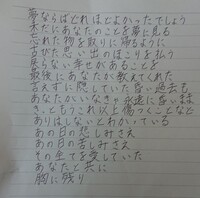 夢ならばどれほどよかったでしょう
未だにあなたのことを夢に見る
忘れた物を取りに帰るように
古びた思い出のほこりを払う
戻らない幸せがあることを
最後にあなたが教えてくれた
言えずに隠していた昏い過去も
あなたがいなきゃ永遠に昏いまま
きっともうこれ以上傷つくことなど
ありはしないとわかっている
あの日の悲しみさえ
あの日の苦しみさえ
その全てを愛していた
あなたと共に
胸に残り